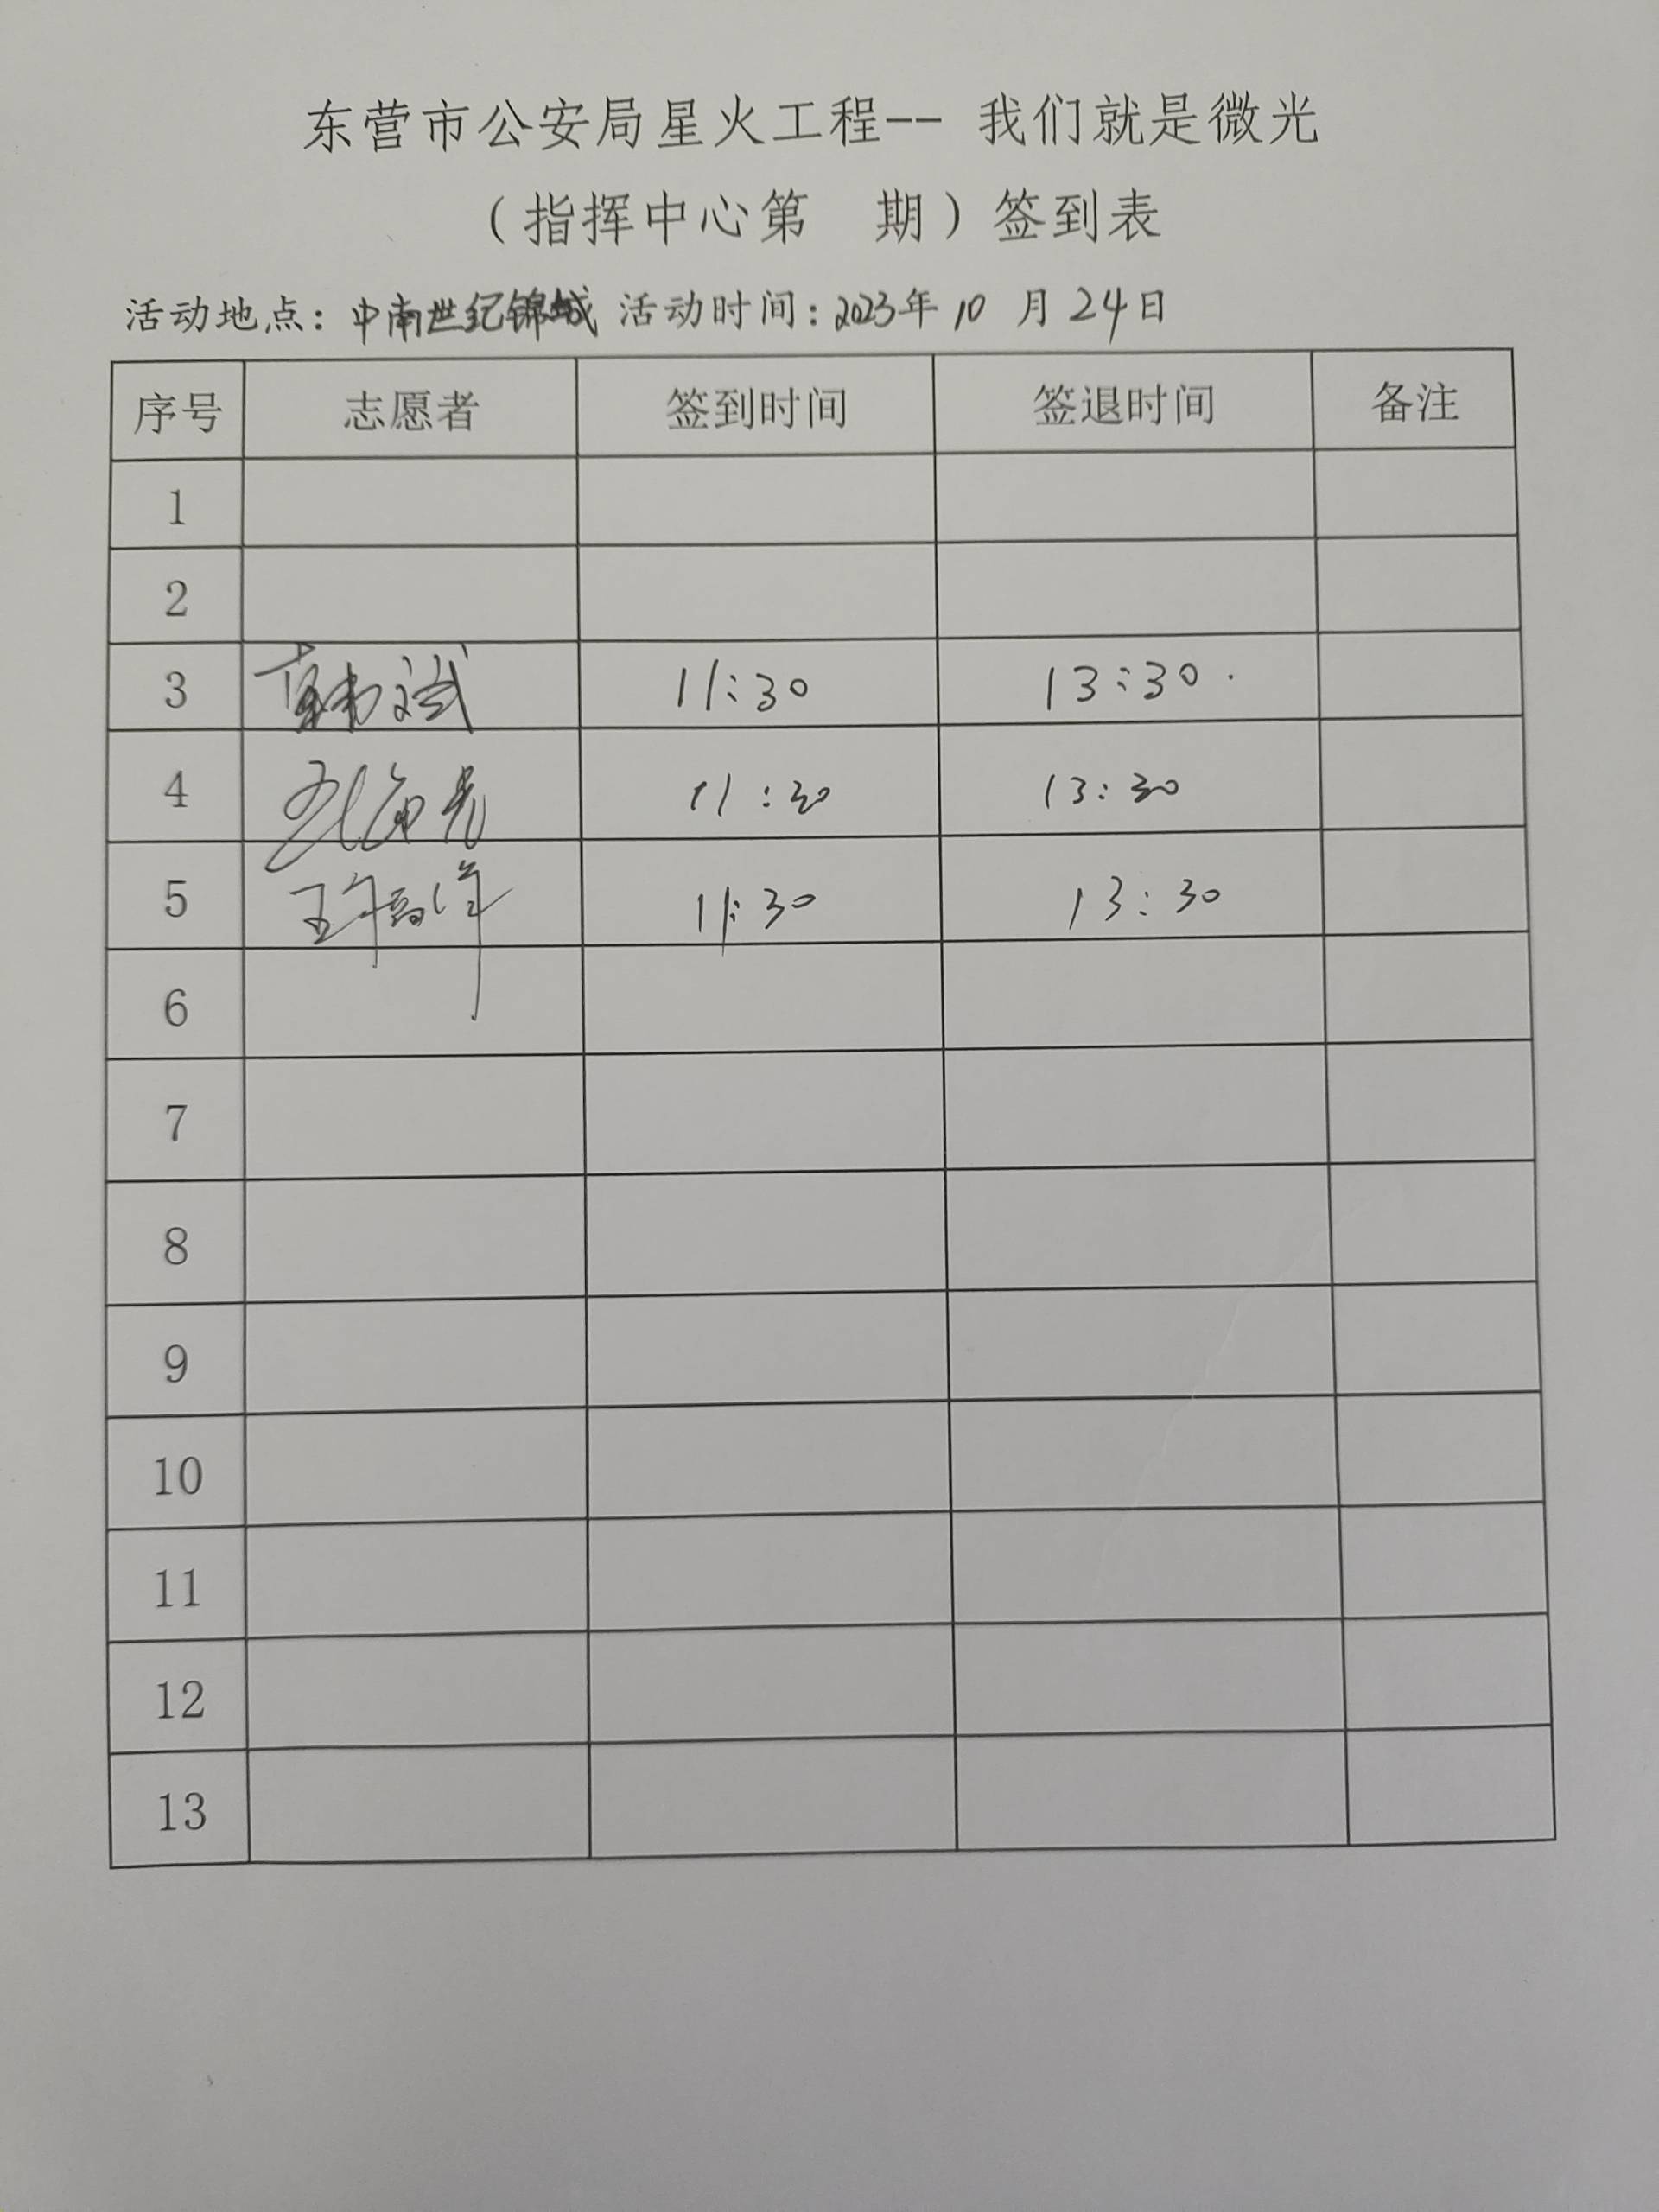 东营市公安局星火工程-- 我们就是微光
（指挥中心第 期）签到表
活动地点：中南世纪锦城 活动时间：2023年 10 月 24日
序号 志愿者 签到时间 签退时间 备注
1
2
3 11:30 13:30.
4 11:30 13:30
5 11:30 13:30
6
7
8
9
10
11
12
13